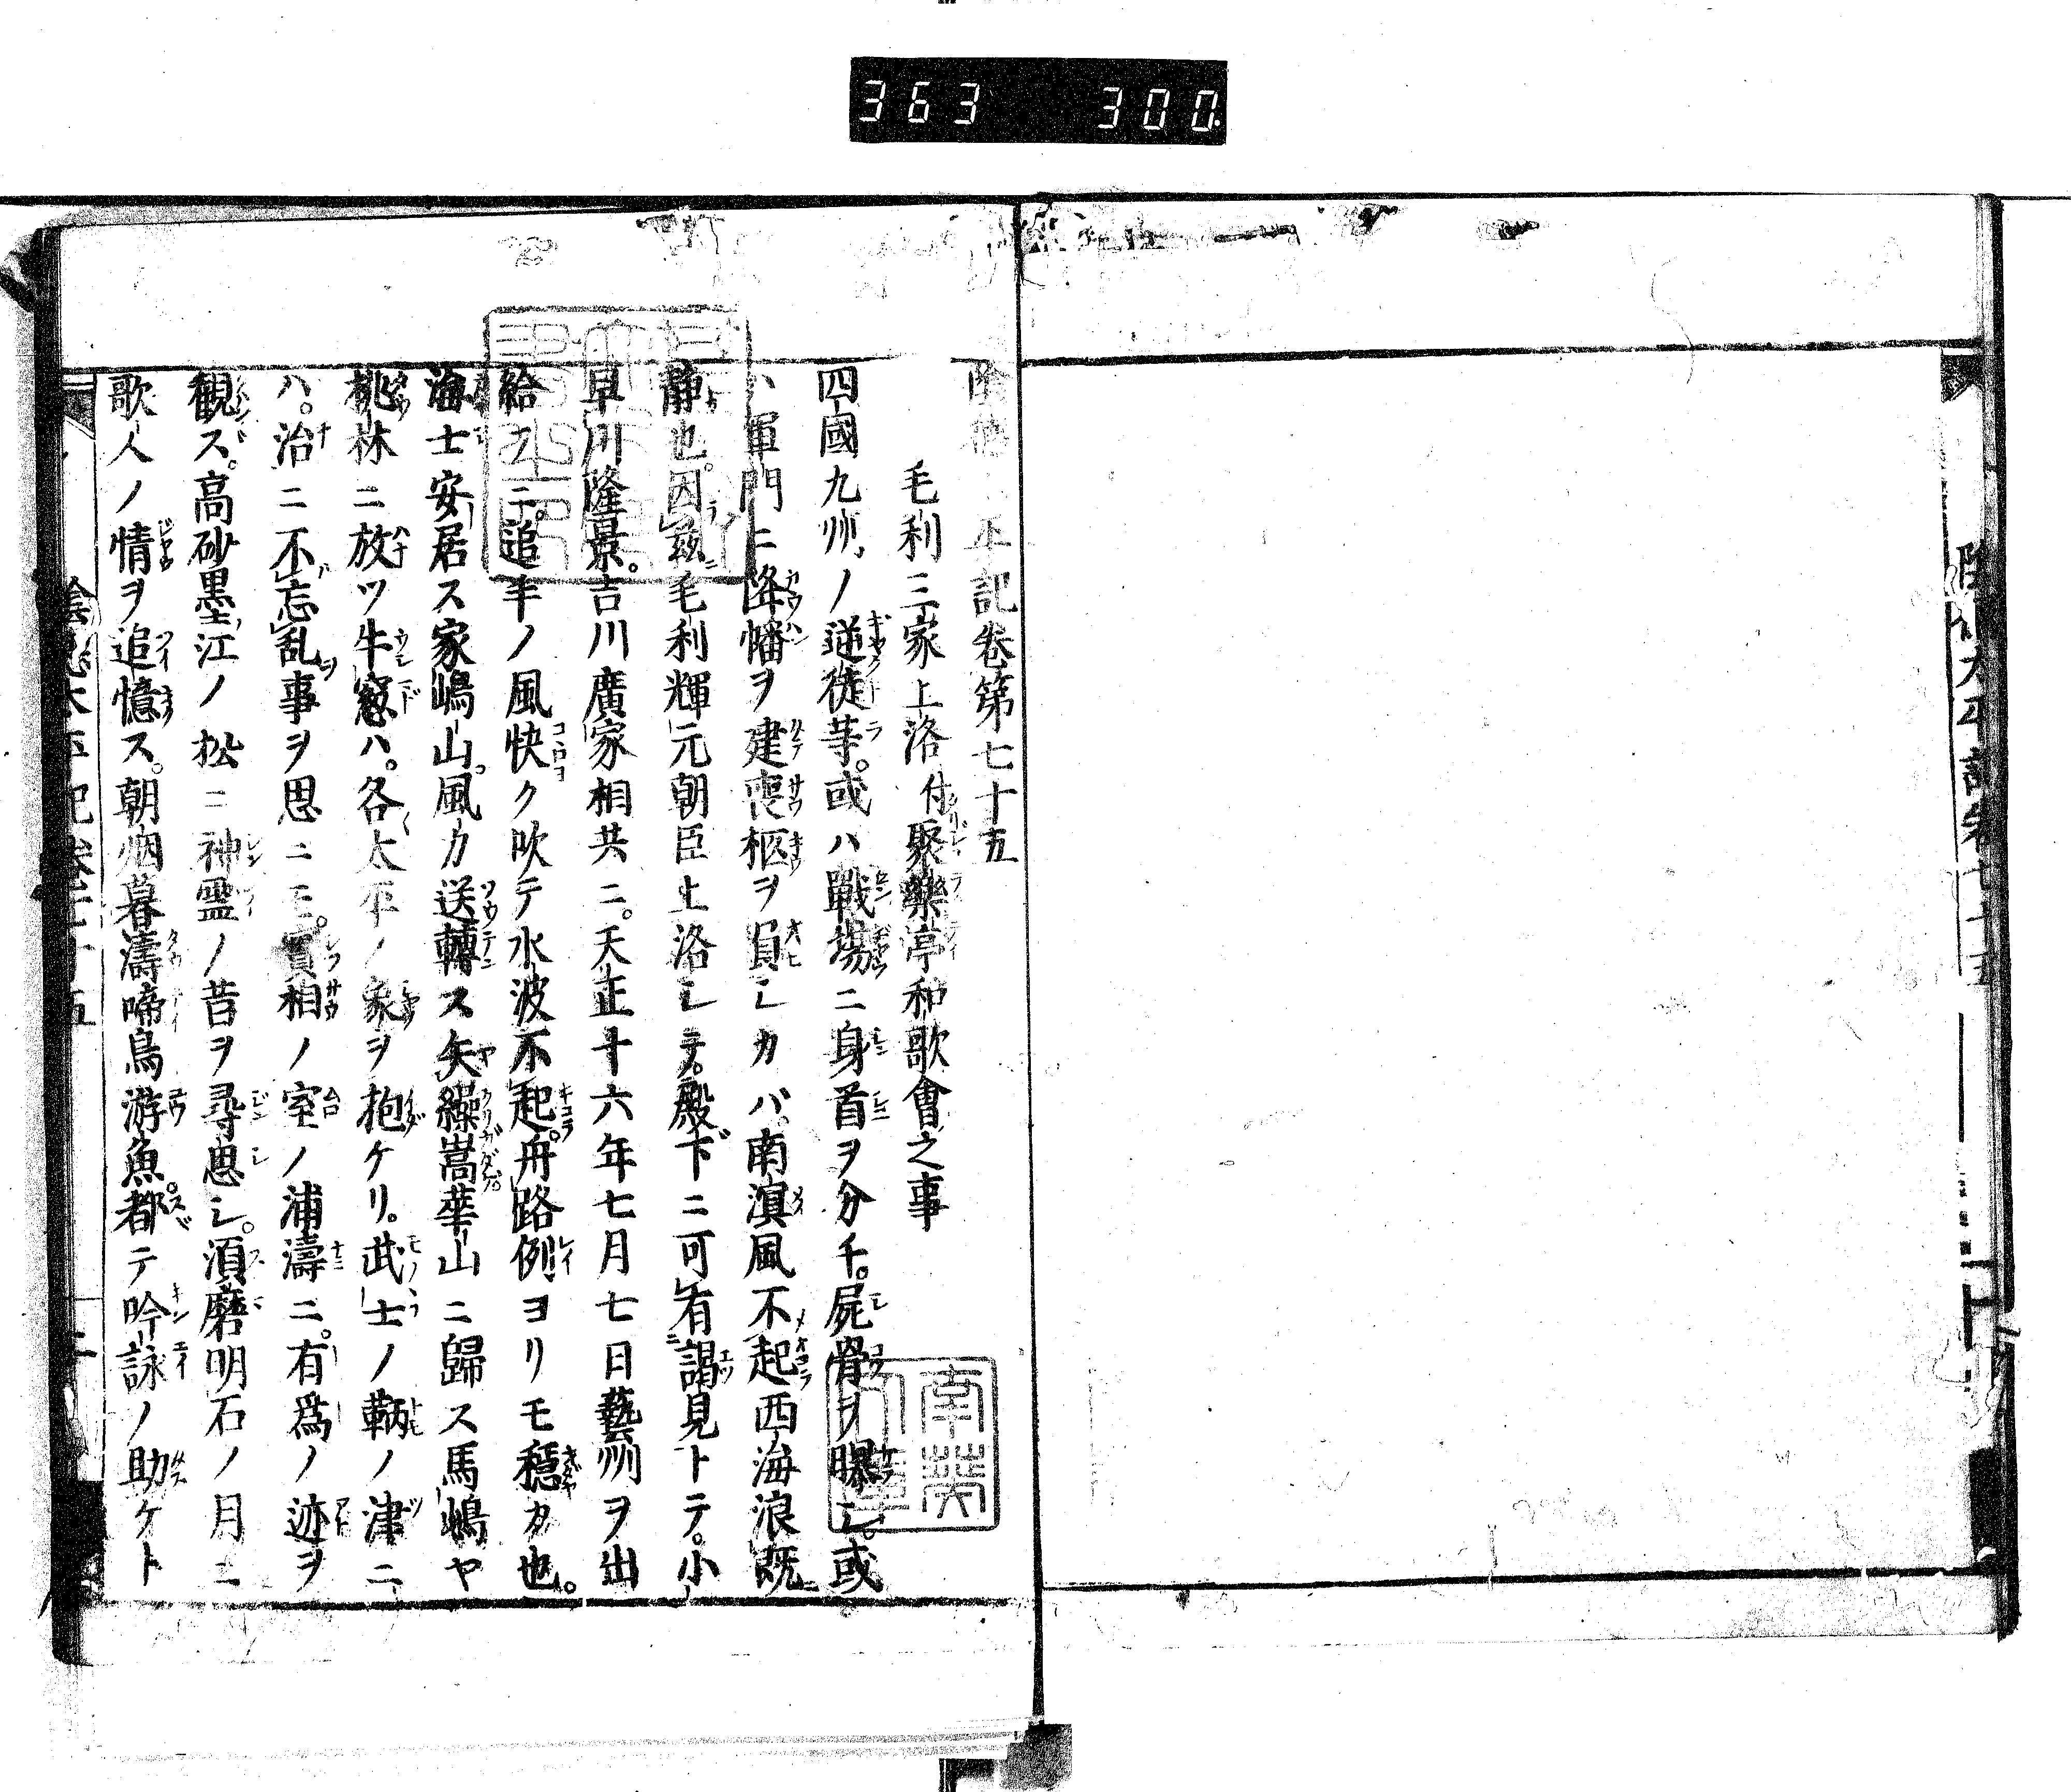 363 300
陰徳太平記卷第七十五
毛利三家上洛付聚樂亭和歌會之事
四國九州ノ逆徒等。或ハ戰場ニ身首ヲ分チ。屍骨ヲ曝シ。或
ハ軍門ニ降幡ヲ建喪柩ヲ負シカバ。南溟風不起西海浪既
静也。因茲毛利輝元朝臣上洛シテ。殿下ニ可有謁見トテ。小
早川隆景。吉川廣家相共ニ。天正十六年七月七日藝州ヲ出
給フニ。追手ノ風快ク吹テ水波不起。舟路例ヨリモ穏カ也。
海士安居ス家嶋山。風カ送轉ス矢繰嵩華山ニ歸ス馬嶋ヤ
桃林ニ放ツ牛窓ハ。各太平ノ象ヲ抱ケリ。武士ノ鞆ノ津ニ
ハ。治ニ不忘乱事ヲ思ニモ。實相ノ室ノ浦濤ニ。有爲ノ迹ヲ
観ス。高砂墨江ノ松ニ神霊ノ昔ヲ尋思シ。須磨明石ノ月ニ
歌人ノ情ヲ追憶ス。朝烟暮濤啼鳥游魚。都テ吟詠ノ助ケト
陰徳太平記卷七十五